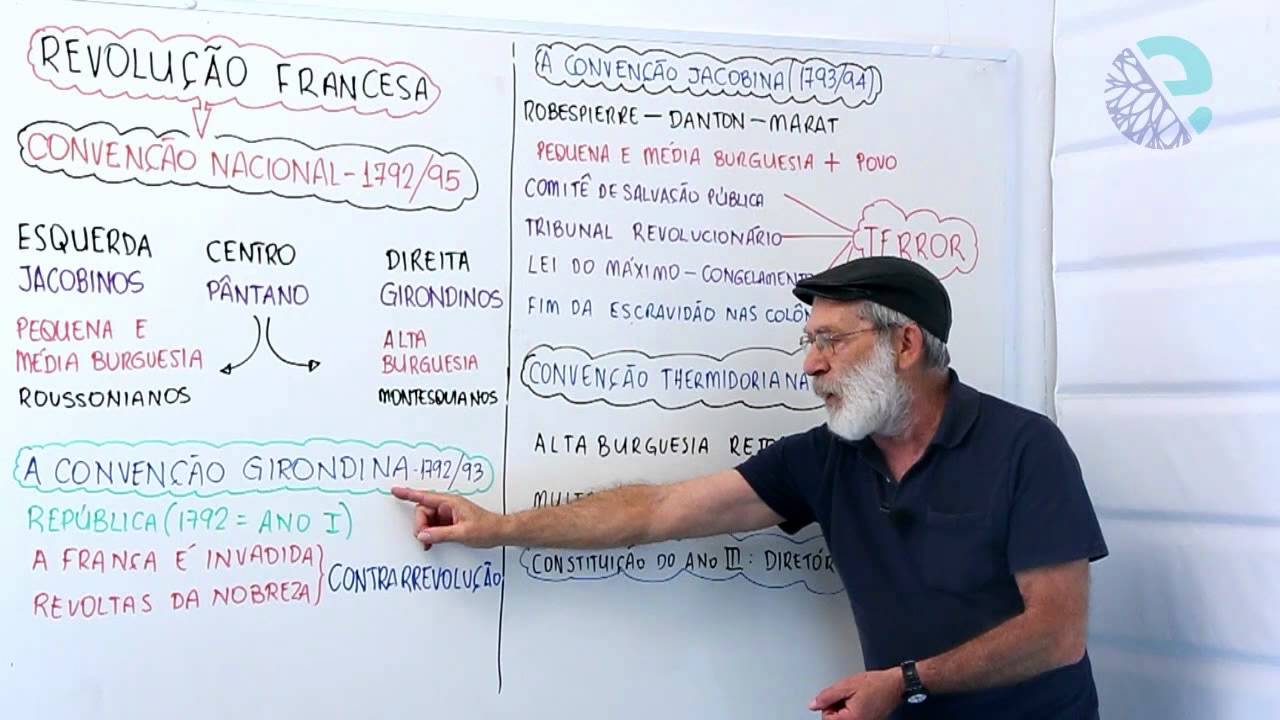 REVOLUÇÃO FRANCESA
CONVENÇÃO NACIONAL - 1792/95
ESQUERDA
JACOBINOS
PEQUENA E
MÉDIA BURGUESIA
ROUSSONIANOS
CENTRO
PÂNTANO
DIREITA
GIRONDINOS
ALTA
BURGUESIA
MONTESQUIANOS
A CONVENÇÃO GIRONDINA - 1792/93
REPÚBLICA (1792 = ANO I)
A FRANÇA É INVADIDA
REVOLTAS DA NOBREZA
CONTRARREVOLUÇÃO
A CONVENÇÃO JACOBINA (1793/94)
ROBESPIERRE - DANTON - MARAT
PEQUENA E MÉDIA BURGUESIA + POVO
COMITÊ DE SALVAÇÃO PÚBLICA
TRIBUNAL REVOLUCIONÁRIO
LEI DO MÁXIMO - CONGELAMENT
TERROR
FIM DA ESCRAVIDÃO NAS COLÔN
CONVENÇÃO THERMIDORIANA
ALTA BURGUESIA
CONSTITUIÇÃO DO ANO III: DIRETÓR